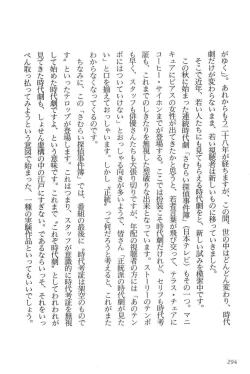 がゆく』。あれからもう二十八年が経ちますが、この間、世の中はどんどん変わり、時代
劇だけが変わらないまま、若い視聴者は新しいものへと移っていきました。
そこで近年、若い人たちにも見てもらえる時代劇をと、新しい試みを模索中です。
この秋に始まった連続時代劇『さむらい探偵事件簿』（日本テレビ）もその一つ。マニ
キュアにピアスの女性が出てきたかと思うと、若者言葉が飛び交って、テラス・チェアに
コーヒー・サイホンまでが登場する。ここでは扮装こそ時代劇だけれど、セリフも時代考
証も、これまでのしきたりを無視した型破りな末となっています。ストーリーのテンポ
も早く、スタッフも俳優さんたちも大張り切りですが、年配の視聴者の方には「あのテン
ポにはついていけない」とおっしゃる向きが多いようで、皆さん「正統派の時代劇が見た
い」と口を揃えておっしゃいます。しかし、“正統”って何だろうと考えると、これがまた
わからなくなってくるのです。
ちなみに、この『さむらい探偵事件簿』では、番組の最後に「時代考証は架空のもので
す」といったテロップが登場します。これはつまり、スタッフが意識的に時代考証を無視
して始めた時代劇ですよ、という意味です。これまで、“これぞ時代劇”として行われ、
見てきた時代劇も、しょせん虚構の中の江戸にすぎない。であるならいっそ、それをいっ
ぺん取っ払ってみようという意図で始まった、一種の実験作品といってもいいでしょう。
294